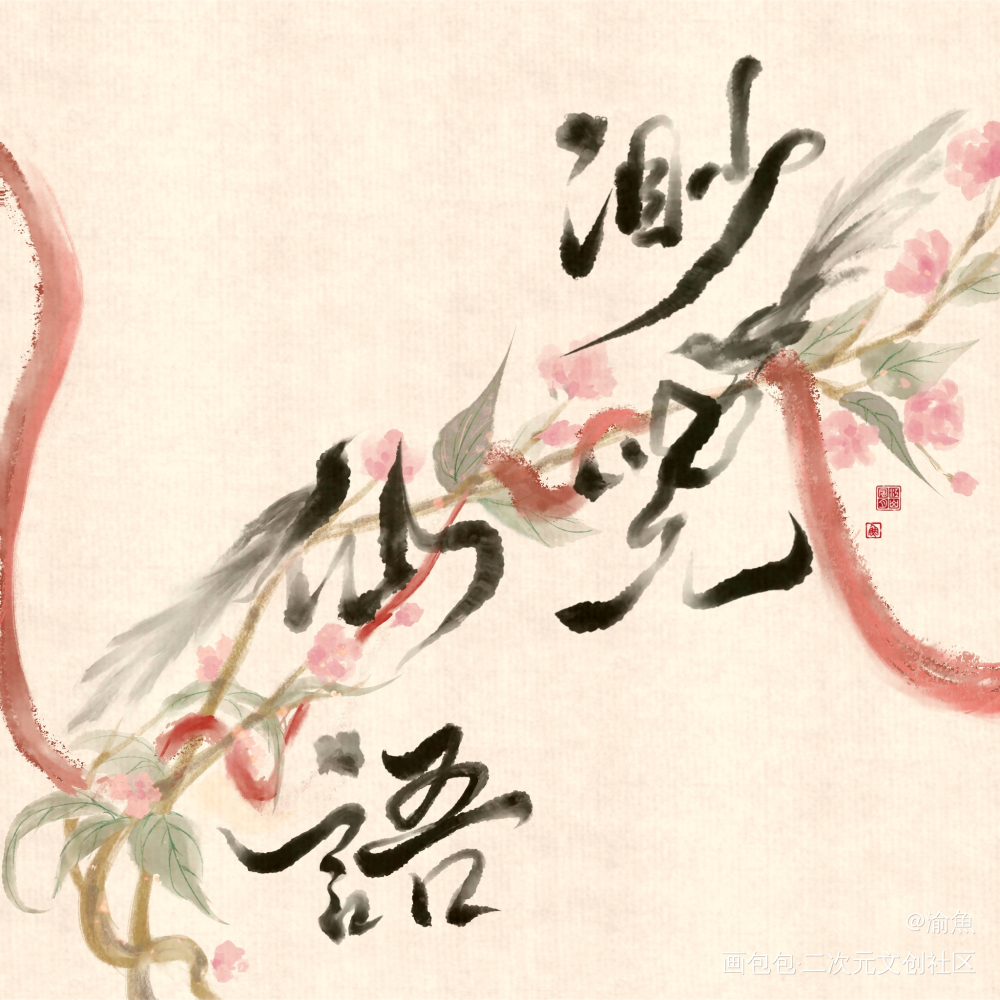 渺兒
仙語
@渝魚
画包包·二次元文创社区